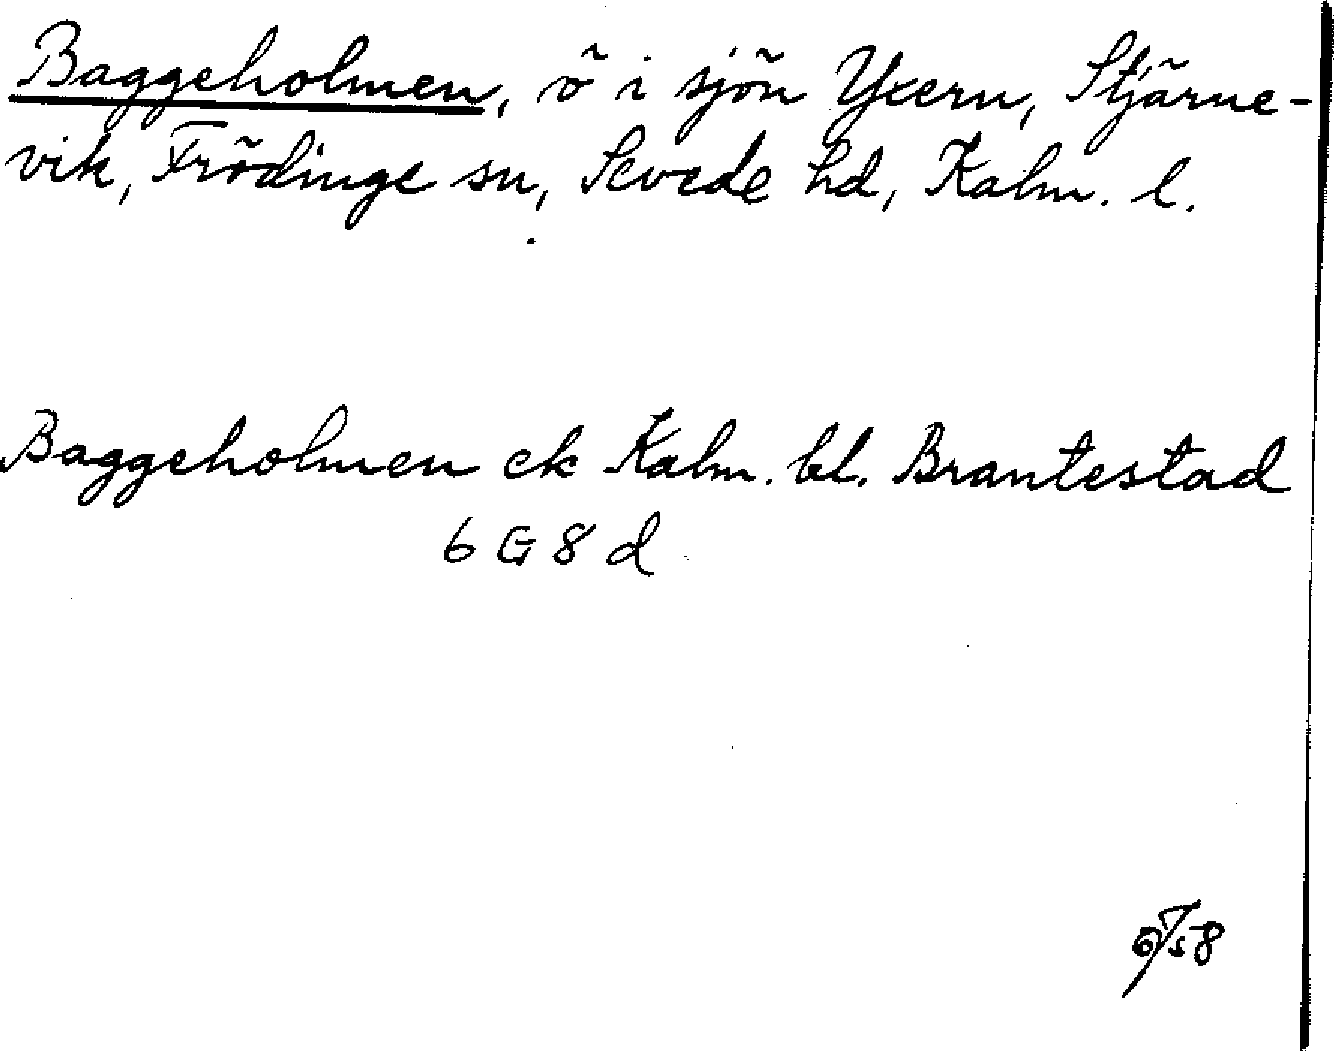 Baggeholmen, ö i sjön Yxern, Stjärne-
vik, Frödinge sn, Sevede hd, Kalm. l.
Baggeholmen ek Kalm. bl. Brantestad
6 G 8 d